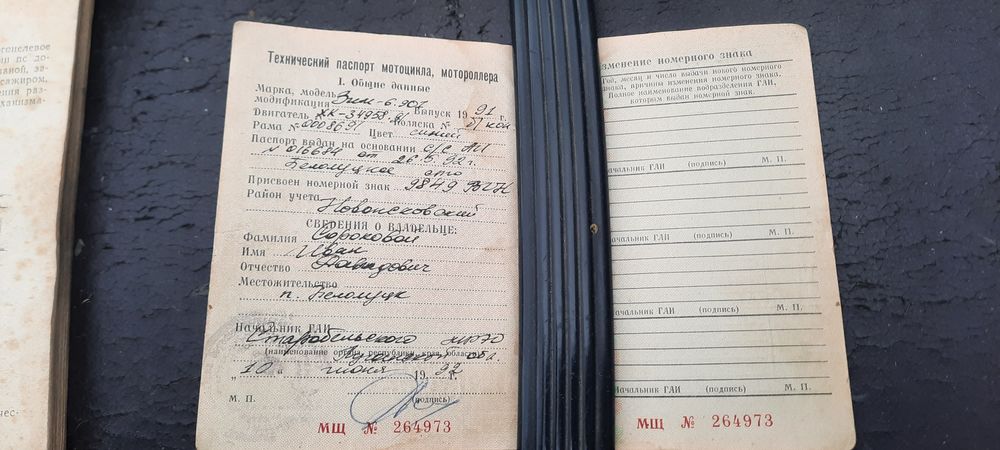 гоцелевое
по до-
за-
сажиром,
ения раз-
ханизма-
чес-
Технический паспорт мотоцикла, мотороллера
I. Общие данные
Марка, модель
модификация Зим-6.907 Выпуск 1991 г.
Двигатель КК-34958 Коляска № б/кол
Рама № 0008691 Цвет синий
Паспорт выдан на основании с/с АП
№ 016684 от 26.5.92 г.
Беловодское
Присвоен номерной знак 9849
Район учета
Новопсковский
СВЕДЕНИЯ О ВЛАДЕЛЬЦЕ:
Фамилия Сороковой
Имя Иван
Отчество Давидович
Местожительство
п. Белолуцк
Начальник ГАИ
Старобельского МРЭО
(наименование органа, республики, края, области)
Луганской обл
„ 10 “ июня 1992 г.
М. П. (подпись)
МЩ № 264973
Изменение номерного знака
Год, месяц и число выдачи нового номерного
знака, причина изменения номерного знака.
Полное наименование подразделения ГАИ,
которым выдан номерной знак.
Начальник ГАИ (подпись) М. П.
Начальник ГАИ (подпись) М. П.
Начальник ГАИ (подпись) М. П.
Начальник ГАИ (подпись) М. П.
МЩ № 264973